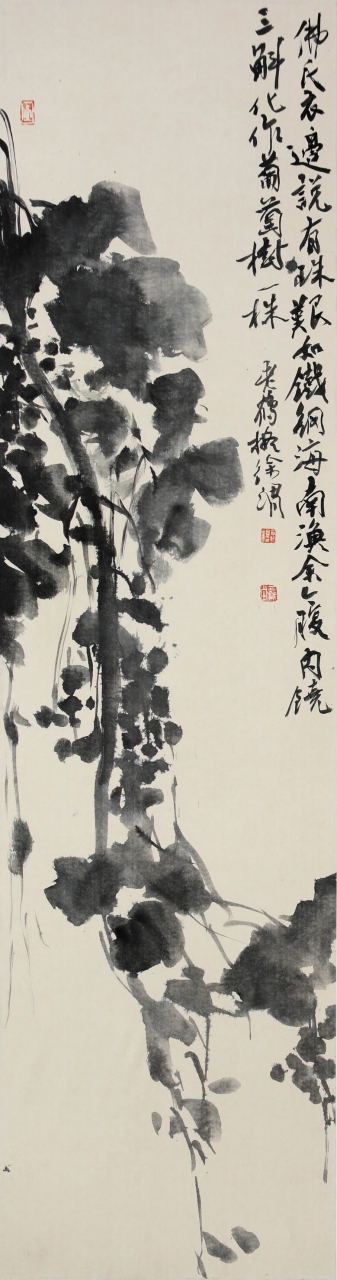 佛氏衣邊說有珠艱如鐵網海南漁余腹內饒
三斛化作葡萄樹一株
老鶴 徐渭